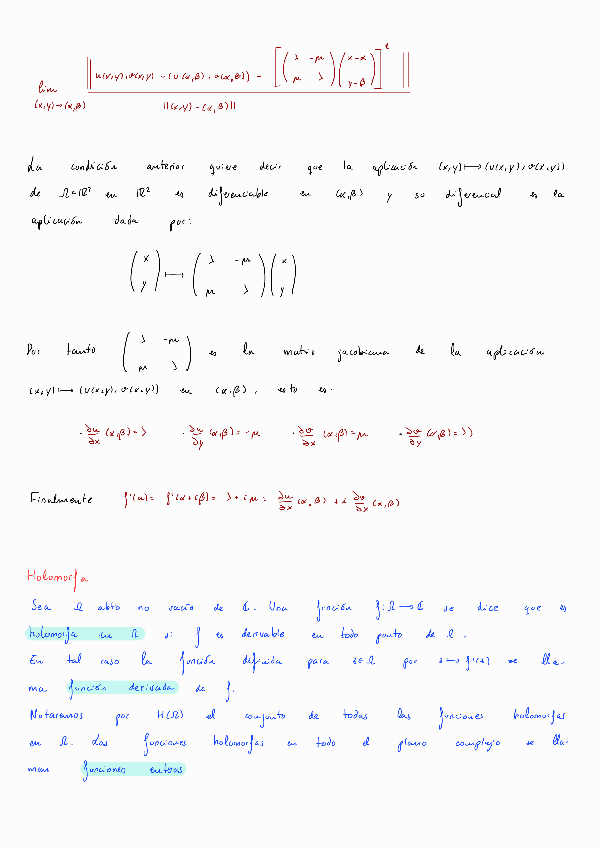 lim (x,y)→(α,β) || u(x,y), v(x,y) - (u(α,β), v(α,β)) - [ ( λ -μ ; μ λ ) ( x-α ; y-β ) ]^t || / ||(x,y) - (α,β)||
La condición anterior quiere decir que la aplicación (x,y) ⟼ (u(x,y), v(x,y))
de Ω⊂ℝ² en ℝ² es diferenciable en (α,β) y su diferencial es la
aplicación dada por:
( x ; y ) ⟼ ( λ -μ ; μ λ ) ( x ; y )
Por tanto ( λ -μ ; μ λ ) es la matriz jacobiana de la aplicación
(x,y) ⟼ (u(x,y), v(x,y)) en (α,β), esto es.
· ∂u/∂x (α,β) = λ · ∂u/∂y (α,β) = -μ · ∂v/∂x (α,β) = μ · ∂v/∂y (α,β) = λ)
Finalmente f'(a) = f'(α+iβ) = λ + iμ = ∂u/∂x (α,β) + i ∂v/∂x (α,β)
Holomorfa
Sea Ω abto no vacío de ℂ. Una función f: Ω → ℂ se dice que es
holomorfa en Ω si f es derivable en todo punto de Ω.
En tal caso la función definida para z∈Ω por z ⟼ f'(z) se lla-
ma función derivada de f.
Notaremos por H(Ω) el conjunto de todas las funciones holomorfas
en Ω. Las funciones holomorfas en todo el plano complejo se lla-
man funciones enteras